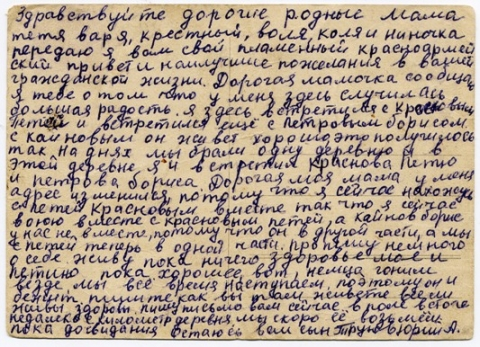 Здравствуйте дорогие родные мама
тетя варя, крестный, воля, коля и ниночка
передаю я вам свой пламенный красноармей
ский привет и наилучшие пожелания в вашей
гражданской жизни. Дорогая мамочка сообщаю
я тебе о том что у меня здесь случилась
большая радость. я здесь встретился с Красновым
петей встретился ещё с Петровым борисом
с каиновым он живёт хорошо это получилось
так на днях мы брали одну деревню я в
этой деревне и встретил Краснова Петю
и петрова бориса. Дорогая моя мама у меня
адрес изменился, потому что я сейчас нахожусь
с петей Красновым вместе так что я сейчас
воюю вместе с красновым петей, а каинов борис
у нас не вместе, потому что он в другой части, а мы
с петей теперь в одной части. пропишу немного
о себе. живу пока ничего здоровье моё и
петино пока хорошее вот немца гоним
везде, мы всё время наступаем, поэтому он и
бежит. пишите как вы там живете все ли
живы, здоровы. пишу письмо вам сейчас в поле я около
недалеко километр деревня мы скоро её возьмём
пока досвидания остаюсь ваш сын А.